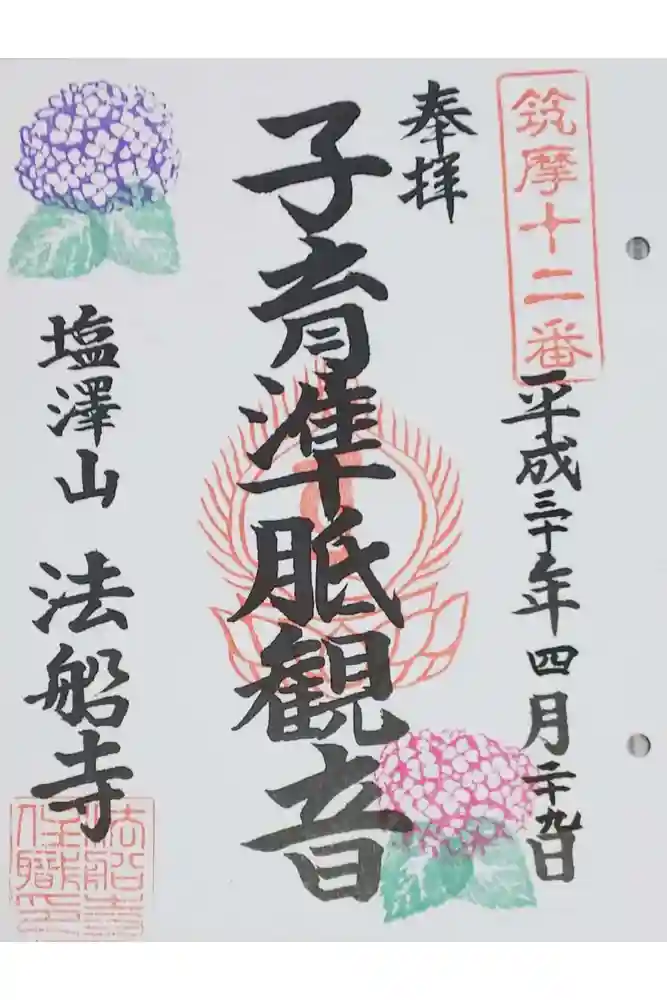 筑摩十二番
平成三十年四月二十九日
奉拝
子育準胝観音
塩澤山 法船寺
法船寺住職之印